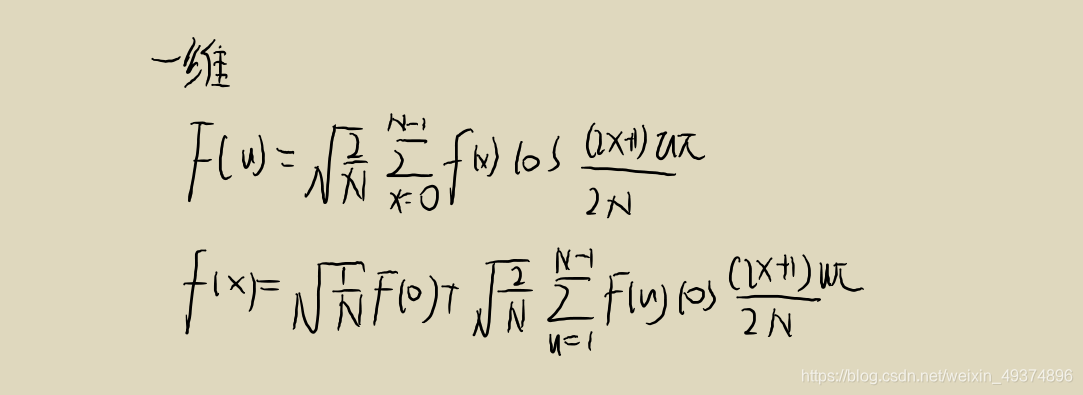 一维
F(u) = √(2/N) ∑_{x=0}^{N-1} f(x) cos (2x+1)uπ / 2N
f(x) = √(1/N) F(0) + √(2/N) ∑_{u=1}^{N-1} F(u) cos (2x+1)uπ / 2N
https://blog.csdn.net/weixin_49374896